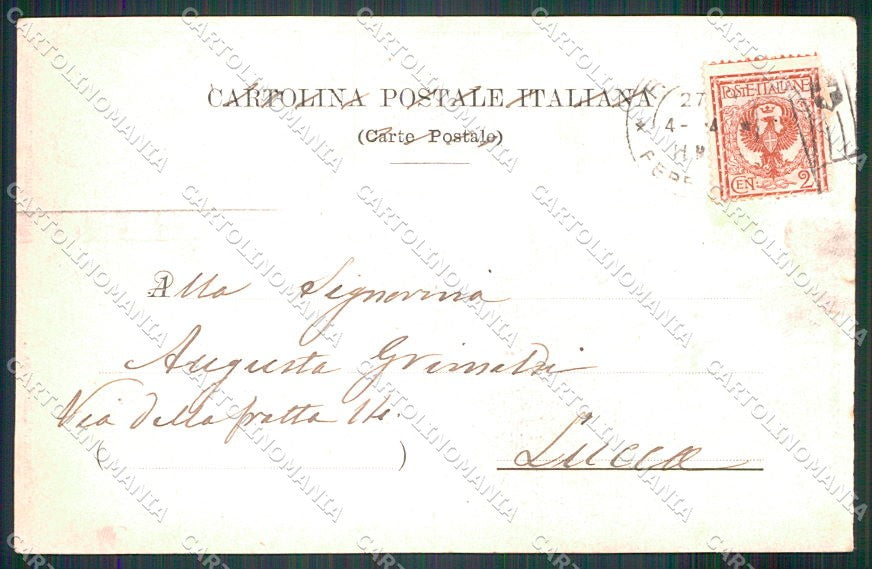 CARTOLINA POSTALE ITALIANA
(Carte Postale)
27
4- 4
POSTE·ITALIANE
CEN. 2
Alla Signorina
Augusta Grimaldi
Via della fratta 14.
Lucca
CARTOLINOMANIA